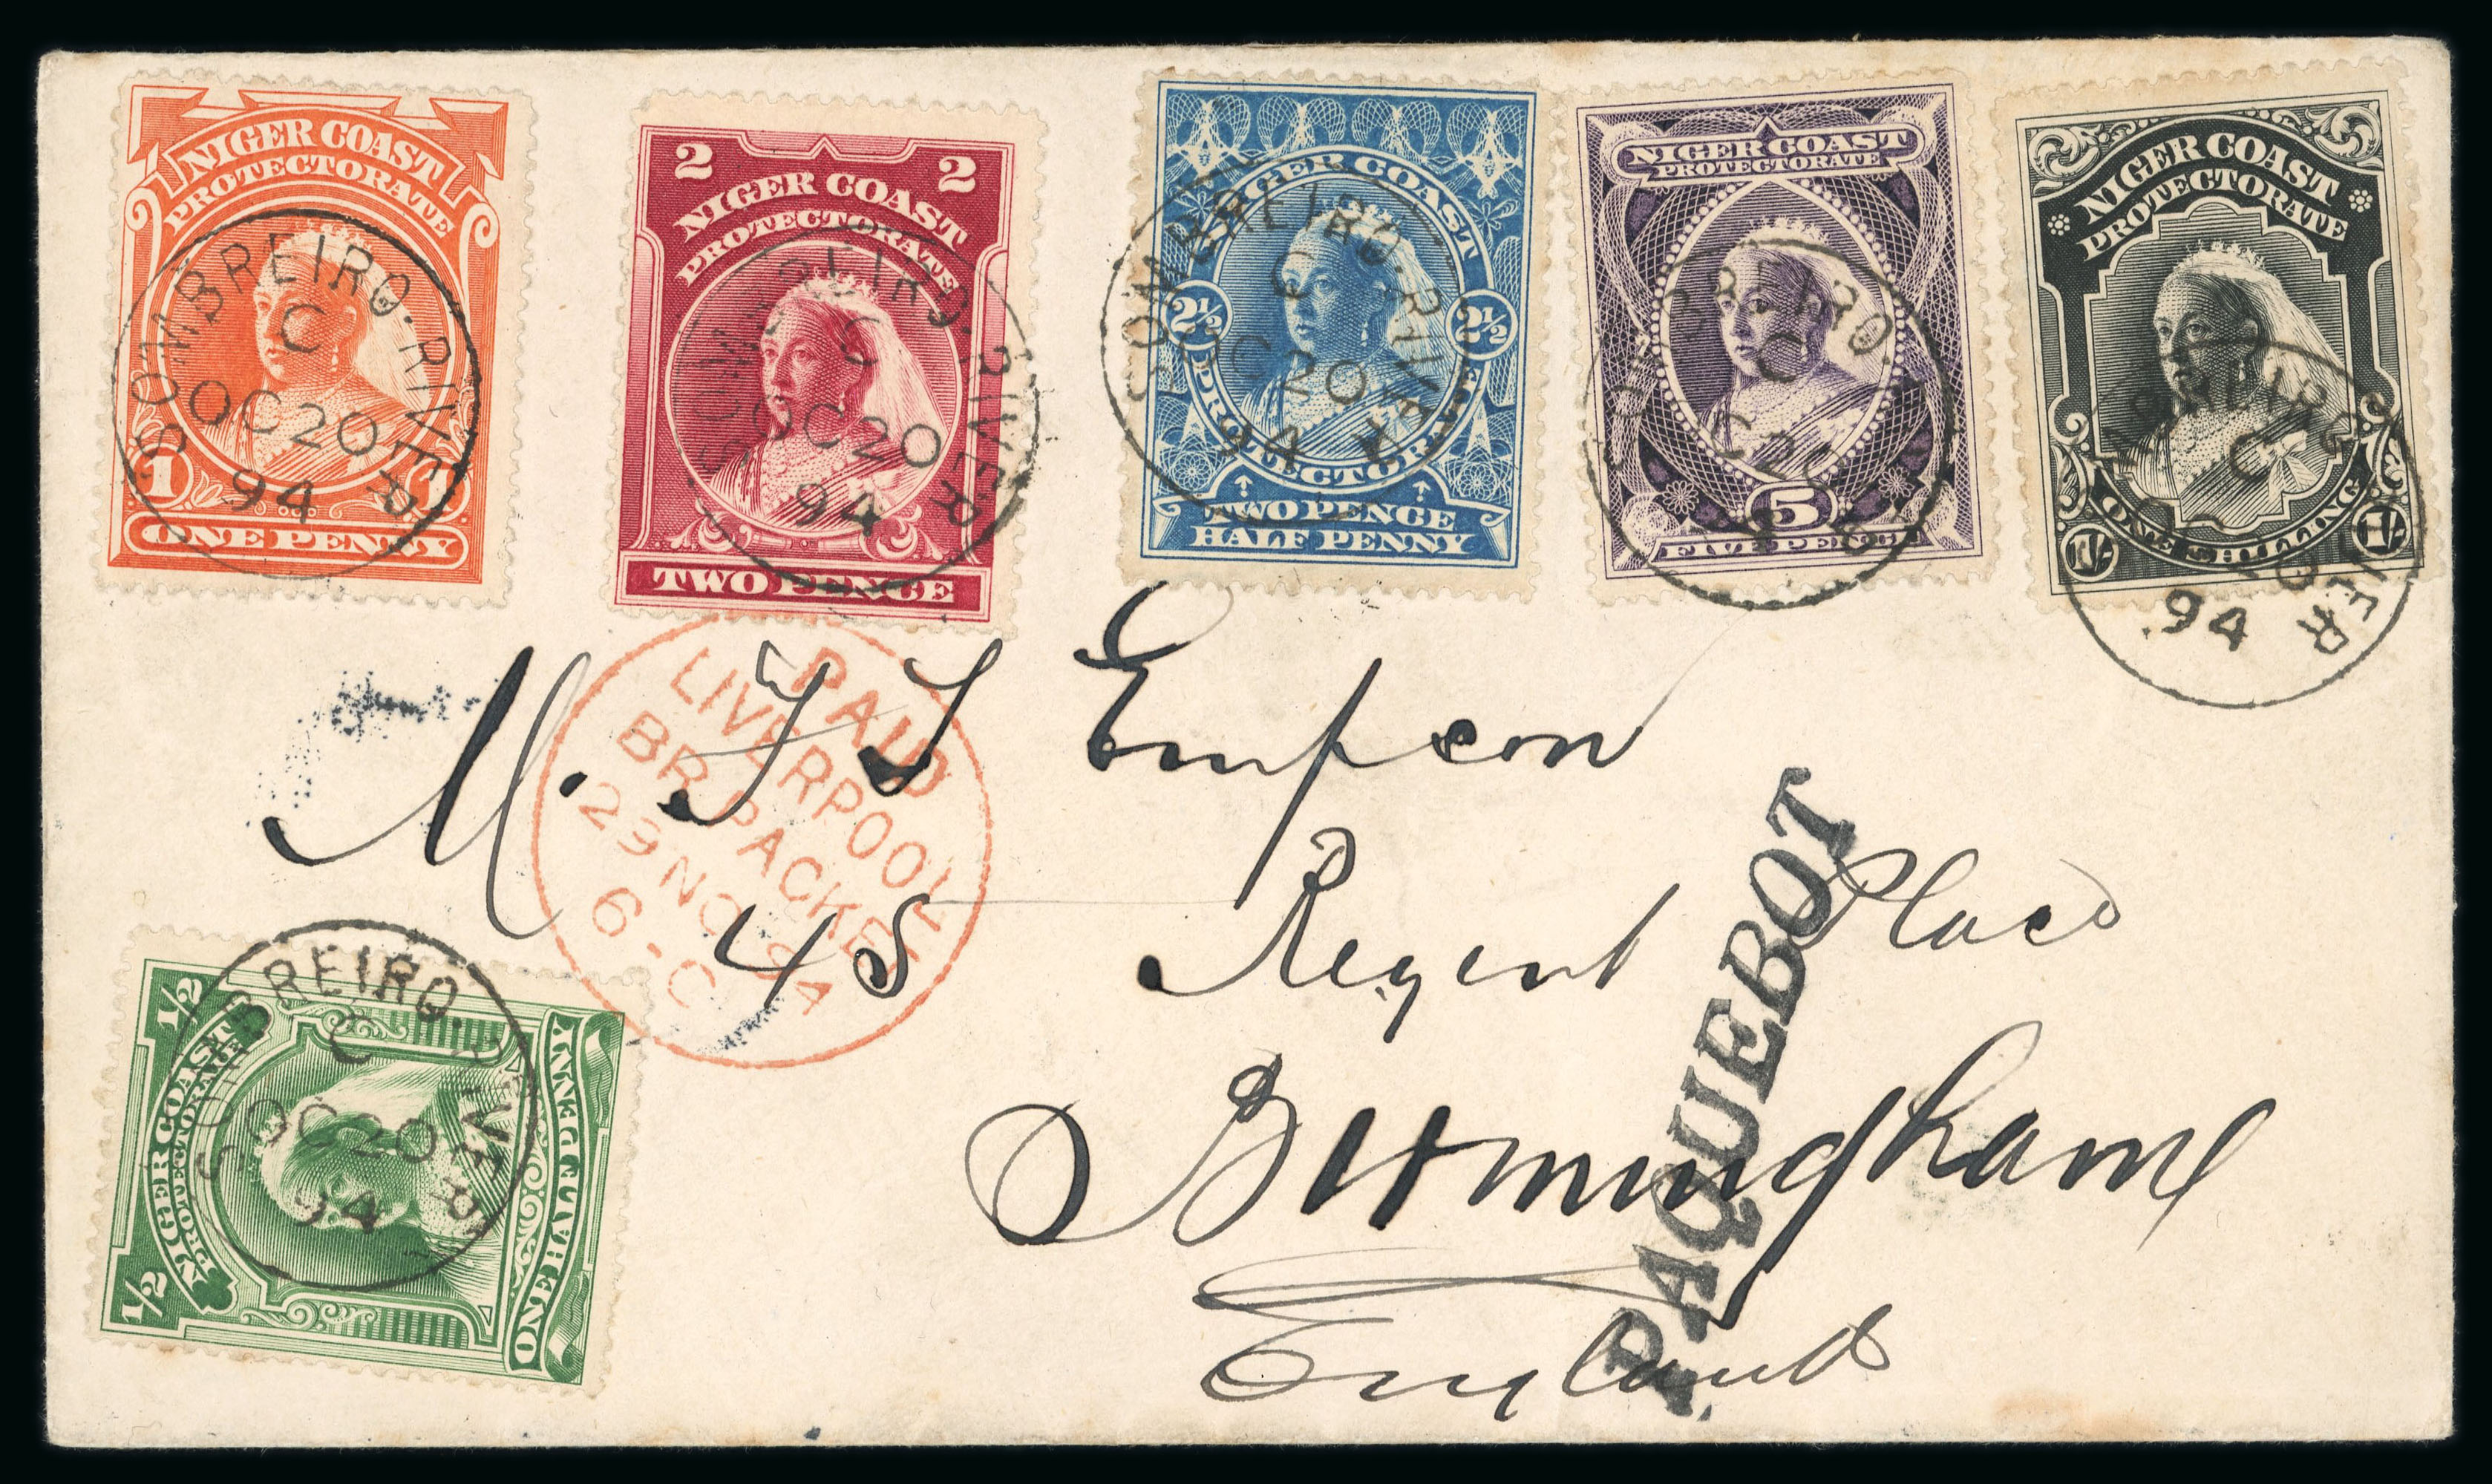 NIGER COAST
PROTECTORATE
1 1
ONE PENNY
SOMBREIRO. RIVER
C
OC 20
94
2 2
NIGER COAST
PROTECTORATE
TWO PENCE
SOMBREIRO. RIVER
C
OC 20
94
NIGER COAST
PROTECTORATE
2½ 2½
TWO PENCE
HALF PENNY
SOMBREIRO. RIVER
C
OC 20
94
NIGER COAST
PROTECTORATE
5
FIVE PENCE
SOMBREIRO. RIVER
C
OC 20
94
NIGER COAST
PROTECTORATE
ONE SHILLING
1/- 1/-
SOMBREIRO. RIVER
C
OC 20
94
PAID
LIVERPOOL
BR. PACKET
29 NO 94
6-C
M. J S Empson
45 Regent Place
Birmingham
England
PAQUEBOT
½ ½
NIGER COAST
PROTECTORATE
ONE HALF PENNY
SOMBREIRO. RIVER
C
OC 20
94